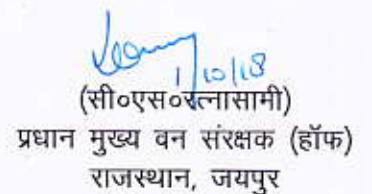 1/10/18
(सी०एस०रत्नासामी)
प्रधान मुख्य वन संरक्षक (हॉफ)
राजस्थान, जयपुर